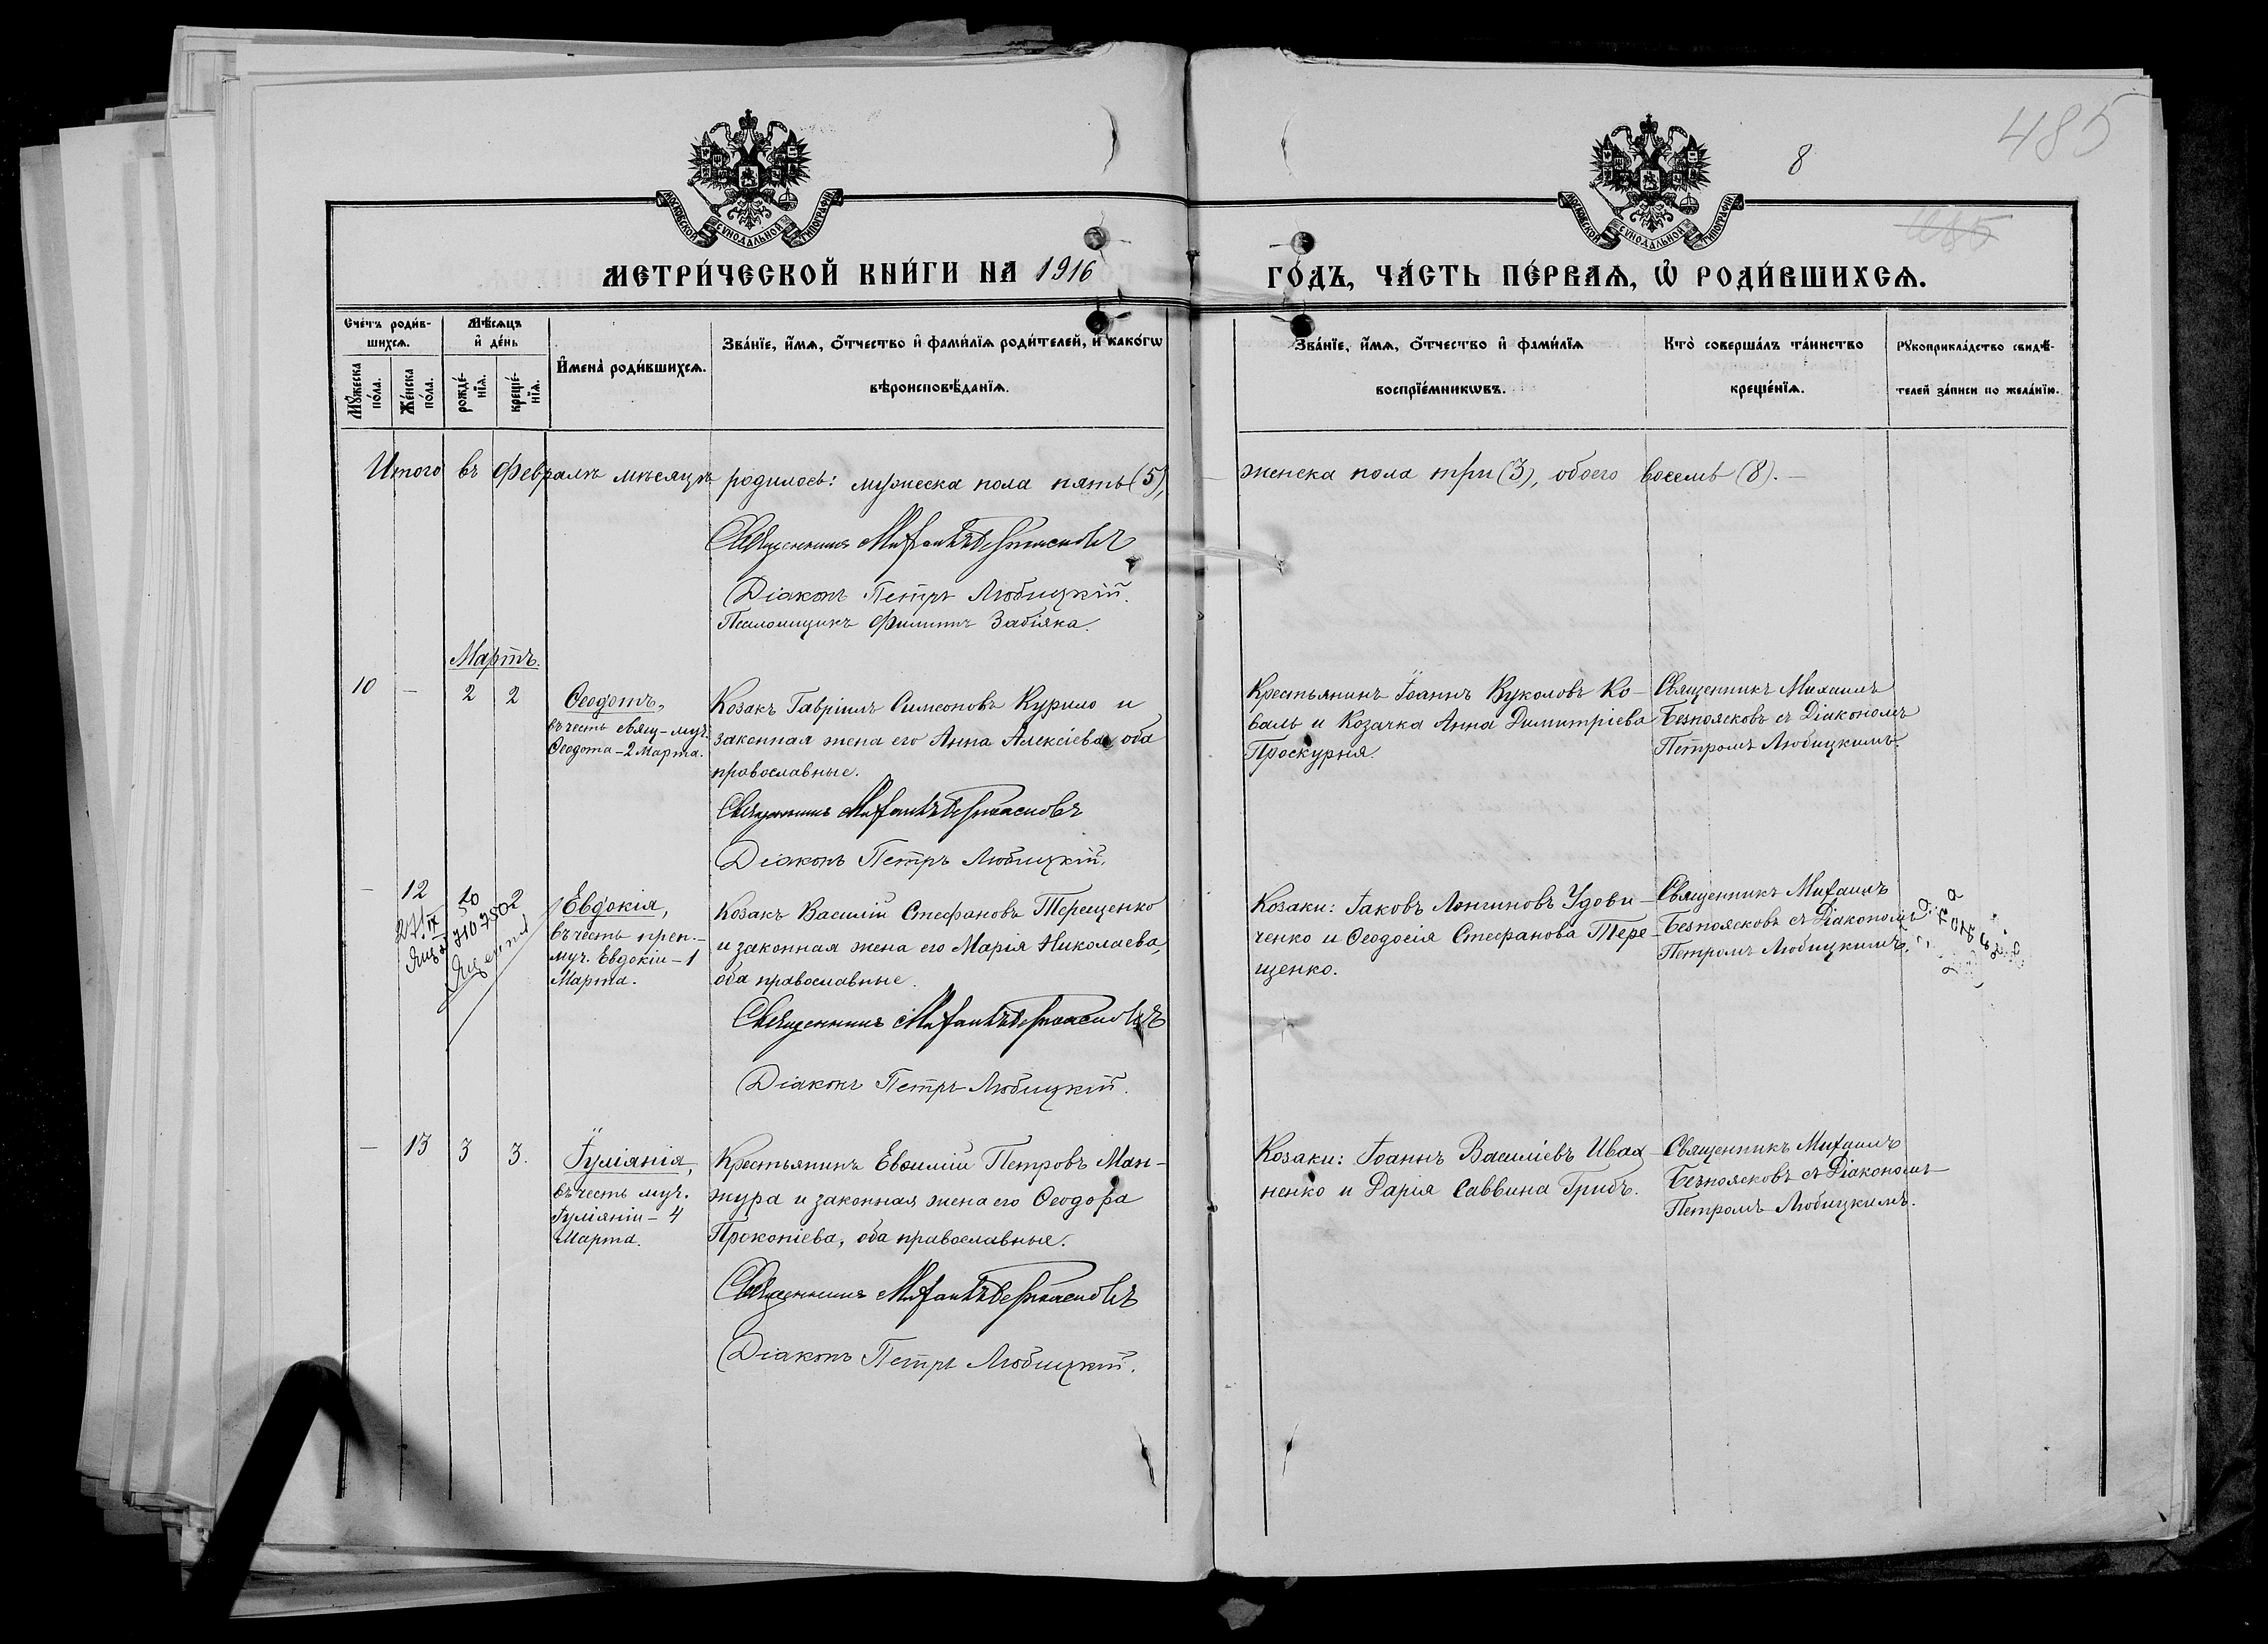 485
8
485
МОСКОВСКОЙ СѴНОДАЛЬНОЙ ТИПОГРАФІИ
МОСКОВСКОЙ СѴНОДАЛЬНОЙ ТИПОГРАФІИ
МЕТРИ́ЧЕСКОЙ КНИ́ГИ НА 1916 ГО́ДЪ, ЧА́СТЬ ПЕ́РВАѦ, Ѡ҆ РОДИ́ВШИХСѦ.
Сче́тъ роди́в-
шихсѧ.
Мꙋ́жеска по́ла.
Же́нска по́ла.
Мѣ́сѧцъ и҆ де́нь
рожде́-
нїѧ.
креще́-
нїѧ.
И҆мена̀ роди́вшихсѧ.
Зва́нїе, и҆́мѧ, ѻ҆́тчество и҆ фами́лїѧ роди́телей, и҆ како́гѡ
вѣроисповѣ́данїѧ.
Зва́нїе, и҆́мѧ, ѻ҆́тчество и҆ фами́лїѧ
воспрїе́мникѡвъ.
Кто̀ соверша́лъ та́инство
креще́нїѧ.
Рꙋкоприкла́дство свидѣ́-
телей за́писи по жела́нїю.
Итого въ Февралѣ мѣсяцѣ родилось: мужеска пола пять (5), женска пола три (3), обоего восемь (8). —
Священникъ Михаилъ Безпоясковъ
Діаконъ Петръ Любицкій.
Псаломщикъ Филиппъ Забіяка.
Мартъ.
10 — 2 2
Ѳеодотъ,
въ честь свящ-муч.
Ѳеодота – 2 Марта.
Козакъ Гавріилъ Симеоновъ Курило и
законная жена его Анна Алексіева, оба
православные.
Священникъ Михаилъ Безпоясковъ
Діаконъ Петръ Любицкій.
Крестьянинъ Іоаннъ Вуколовъ Ко-
валь и Козачка Анна Димитріева
Проскурня.
Священникъ Михаилъ
Безпоясковъ съ Діакономъ
Петромъ Любицкимъ.
— 12 2
27.IX
Евдокія,
въ честь преп.-
муч. Евдокіи – 1
Марта.
Козакъ Василій Стефановъ Терещенко
и законная жена его Марія Николаева,
оба православные.
Священникъ Михаилъ Безпоясковъ
Діаконъ Петръ Любицкій.
Козаки: Іаковъ Лонгиновъ Удови-
ченко и Ѳеодосія Стефанова Тере-
щенко.
Священникъ Михаилъ
Безпоясковъ съ Діакономъ
Петромъ Любицкимъ.
— 13 3 3.
Іуліанія,
въ честь муч.
Іуліаніи – 4
Марта.
Крестьянинъ Евѳимій Петровъ Ман-
жура и законная жена его Ѳеодора
Прокопіева, оба православные.
Священникъ Михаилъ Безпоясковъ
Діаконъ Петръ Любицкій.
Козаки: Іоаннъ Василіевъ Ивах-
ненко и Дарія Саввина Грибъ.
Священникъ Михаилъ
Безпоясковъ съ Діакономъ
Петромъ Любицкимъ.